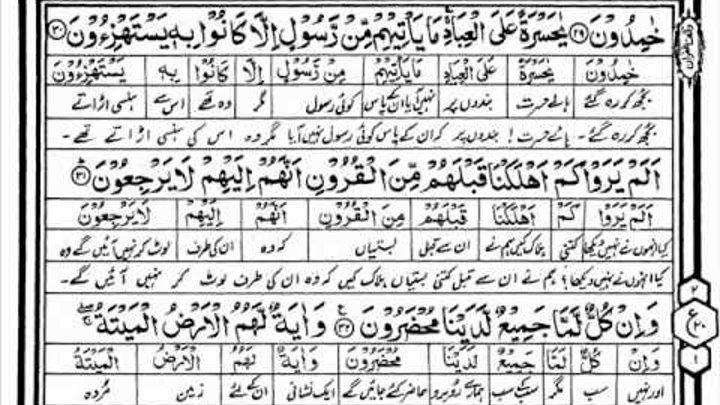 خٰمِدُوْنَ ﴿۲۹﴾ یٰحَسْرَةً عَلَى الْعِبَادِ ۚ مَا یَاْتِیْهِمْ مِّنْ رَّسُوْلٍ اِلَّا كَانُوْا بِهٖ یَسْتَهْزِءُوْنَ ﴿۳۰﴾
خٰمِدُوْنَ یٰحَسْرَةً عَلَى الْعِبَادِ مَا یَاْتِیْهِمْ مِنْ رَّسُوْلٍ اِلَّا كَانُوْا بِهٖ یَسْتَهْزِءُوْنَ
بجھ کر رہ گئے ہائے حسرت بندوں پر نہیں آیا ان کے پاس کوئی رسول مگر وہ تھے اس سے ہنسی اڑاتے
بجھ کر رہ گئے۔ ہائے حسرت! بندوں پر کہ ان کے پاس کوئی رسول نہیں آیا مگر وہ اس کی ہنسی اڑاتے تھے۔
اَلَمْ یَرَوْا كَمْ اَهْلَكْنَا قَبْلَهُمْ مِّنَ الْقُرُوْنِ اَنَّهُمْ اِلَیْهِمْ لَا یَرْجِعُوْنَ ﴿۳۱﴾
اَلَمْ یَرَوْا كَمْ اَهْلَكْنَا قَبْلَهُمْ مِنَ الْقُرُوْنِ اَنَّهُمْ اِلَیْهِمْ لَا یَرْجِعُوْنَ
کیا انہوں نے نہیں دیکھا کتنی ہلاک کیں ہم نے ان سے قبل بستیاں کہ وہ ان کی طرف لوٹ کر نہیں آئیں گے وہ
کیا انہوں نے نہیں دیکھا؟ ہم نے ان سے قبل کتنی بستیاں ہلاک کیں کہ وہ ان کی طرف لوٹ کر نہیں آئیں گے۔
وَ اِنْ كُلٌّ لَّمَّا جَمِیْعٌ لَّدَیْنَا مُحْضَرُوْنَ ﴿۳۲﴾ وَ اٰیَةٌ لَّهُمُ الْاَرْضُ الْمَیْتَةُ
وَ اِنْ كُلٌّ لَمَّا جَمِیْعٌ لَدَیْنَا مُحْضَرُوْنَ وَ اٰیَةٌ لَهُمُ الْاَرْضُ الْمَیْتَةُ
اور نہیں سب مگر سب کے سب ہمارے روبرو حاضر کئے جائیں گے ایک نشانی ان کے لئے زمین مردہ
۲
ع
۲۰
۱